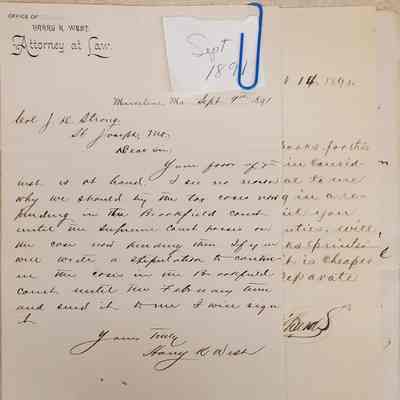 OFFICE OF
HARRY K. WEST,
Attorney at Law.
Sept
1891
Marceline, Mo. Sept. 9th 1891
Col J. H. Strong
St Joseph, Mo.
Dear Sir,
Your favor of 7th
inst. is at hand. I see no reason
why we should try the tax cases now
pending in the Brookfield court
until the Supreme Court passes on
the case now pending there. If you
will write a stipulation to continue
in the cases in the Brookfield
court until the February term
and send it to me I will sign
it.
Yours Truly
Harry K West
14, 189
books for this
in consid-
to me
in a
your
will
prints
is cheaper
separate